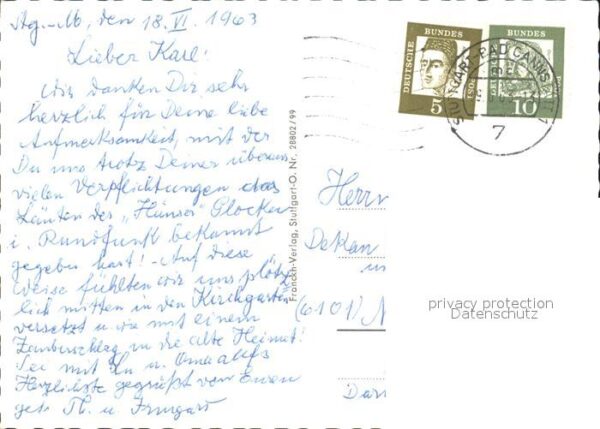 Stg.-Mb, den 18.VI. 1963
Lieber Karl!
Wir danken Dir sehr
herzlich für Deine liebe
Aufmerksamkeit, mit der
Du uns trotz Deiner überaus
vielen Verpflichtungen das
Läuten der „Hünser" Glocken
i. Rundfunk bekannt
gegeben hast! - Auf diese
Weise fühlten wir uns plötz-
lich mitten in den Kirchgarten
versetzt u. wie mit einem
Zauberschlag in die alte Heimat!
Sei mit u. Oma aufs
Herzlichste gegrüßt von Euren
getr. Th. u. Irmgard
Franckh-Verlag, Stuttgart-O. Nr. 28802/99
DEUTSCHE
BUNDES
POST
5
BUNDES
10
STUTTGART-BAD CANNSTATT
7
Herrn
Dekan
(6101) N
Dar
privacy protection
Datenschutz